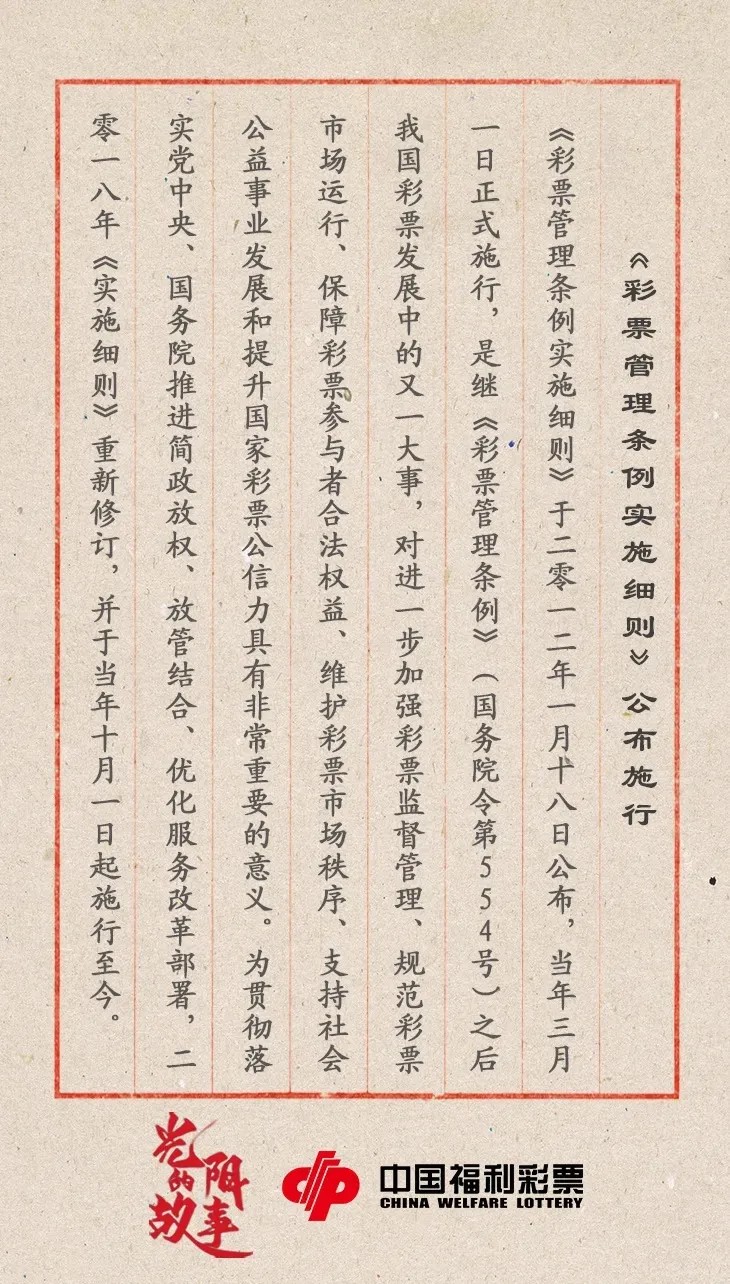 《彩票管理条例实施细则》公布施行
《彩票管理条例实施细则》于二零一二年一月十八日公布，当年三月
一日正式施行，是继《彩票管理条例》（国务院令第554号）之后
我国彩票发展中的又一大事，对进一步加强彩票监督管理、规范彩票
市场运行、保障彩票参与者合法权益、维护彩票市场秩序、支持社会
公益事业发展和提升国家彩票公信力具有非常重要的意义。为贯彻落
实党中央、国务院推进简政放权、放管结合、优化服务改革部署，二
零一八年《实施细则》重新修订，并于当年十月一日起施行至今。
光阴的故事
中国福利彩票
CHINA WELFARE LOTTERY